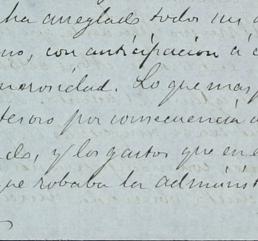 ha arreglado todos sus a
no, con anticipacion á c
enerosidad. Lo que mas p
tesoro por consecuencia d
ado, y los gastos que en e
que robaba la administ